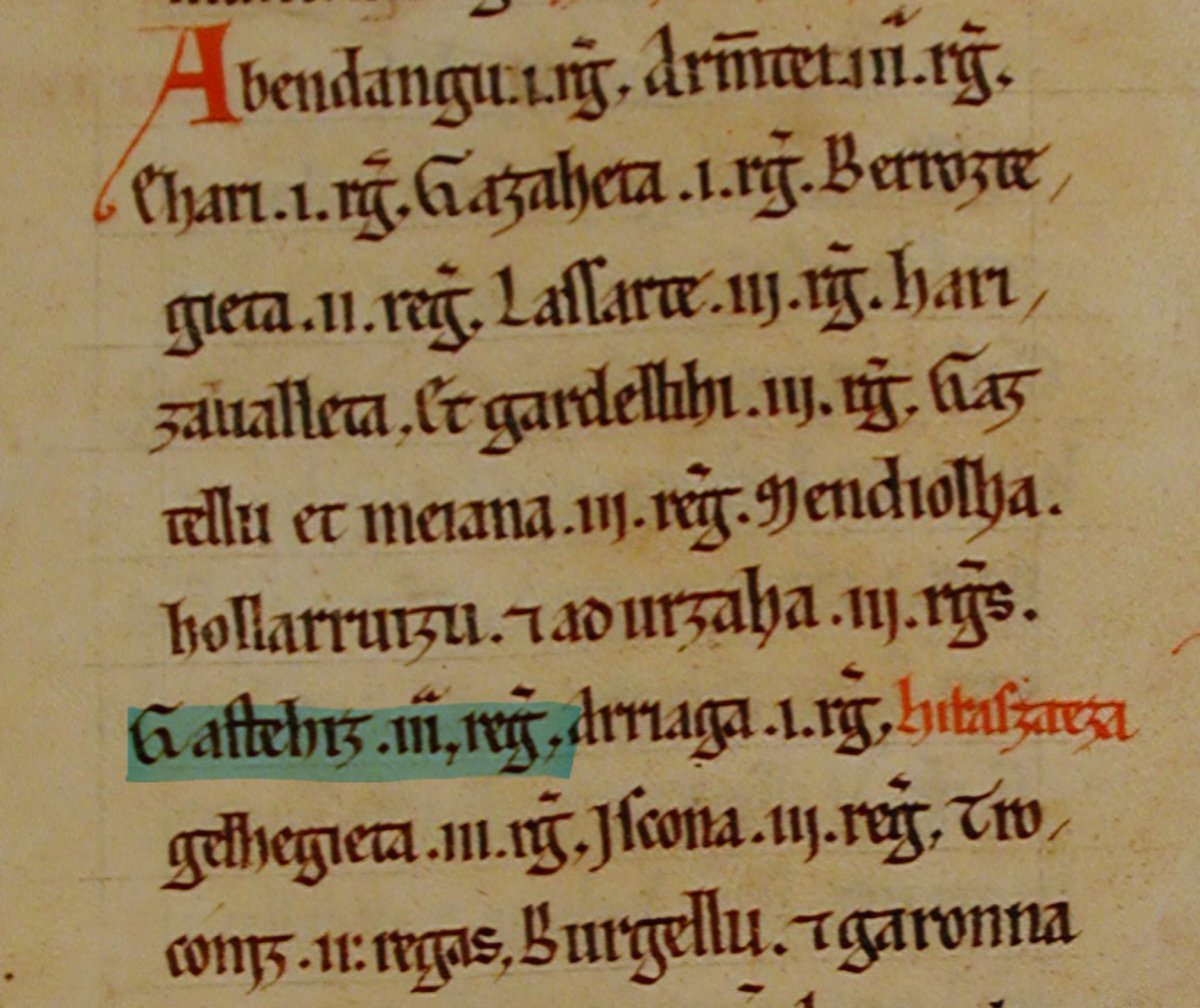 Abendangu.i.rg̃. Arm̃tei.iıı̃.rg̃.
Ehari.i.rg̃. Gazaheta.i.rg̃. Berrozte,
gieta.ii.reg̃. Lassarte.iij.rg̃. hari,
zaualleta, Et gardellihi.iij.rg̃. Gaz
tellu et meiana.iij.reg̃. Mendiolha.
hollarruizu. ⁊ adurzaha.iij.rg̃s.
Gastehiz.iıı̃. reg̃. Arriaga.i.rg̃. hitaszaeza
gelhegieta.iii.rg̃. Iscona.iij.reg̃. Tro,
coniz.ii: regas, Burgellu. ⁊ garonna